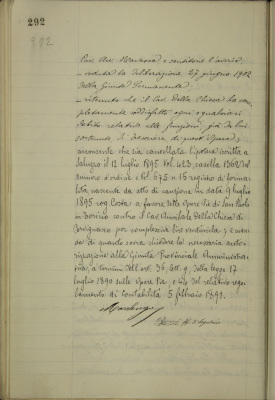 292
902
Cav. Avv.
veduta la deliberazione 27 giugno 1902
della Giunta Permanente;
ritenuto che il Cav. Della Chiesa ha com-
pletamente soddisfatto ogni e qualsiasi
debito relativo alle funzioni, già da lui
sostenute, di Tesoriere di quest'Opera;
acconsente che sia cancellata l'ipoteca iscritta a
Saluzzo il 12 luglio 1895 Vol. 423, casella 1362 del
numero d'ordine e Vol. 675 n 15 registro di forma-
lità, nascente da atto di cauzione in data 9 luglio
1895 rog. Costa, a favore delle Opere Pie di San Paolo
in Torino contro il Cav. Annibale Della Chiesa di
Cervignasco per complessive lire ventimila; e man-
da di quando serva chiedere la necessaria auto-
rizzazione alla Giunta Provinciale Amministra-
tiva, a termini dell'art. 36, lett. g, della legge 17
luglio 1890 sulle Opere Pie, e del relativo rego-
lamento di Contabilità 5 febbraio 1891.